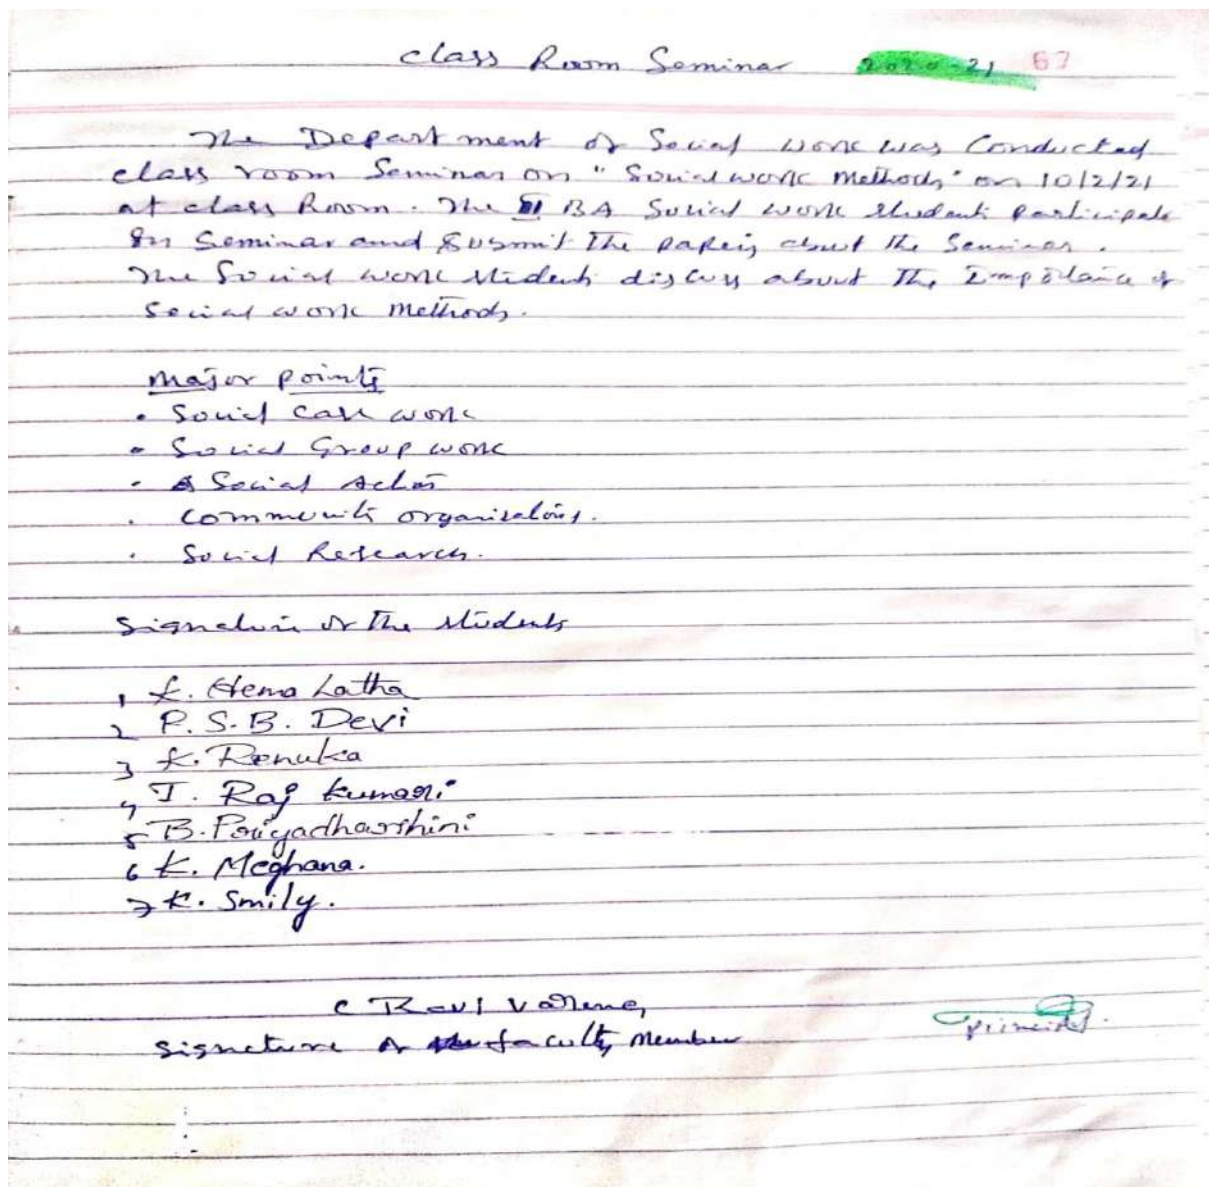 class Room Seminar 2020-21 67
The Department of Social work was Conducted
class room Seminar on "Social work Methods" on 10/2/21
at class Room. The II BA Social work students participate
In Seminar and Submit The papers about the Seminar.
The Social work students discuss about The Importance of
Social work Methods.
Major points
• Social Case work
• Social Group work
• Social Action
• Community organisations.
• Social Research.
Signature of The students
1 K. Hema Latha
2 P. S. B. Devi
3 K. Renuka
4 T. Raj kumari
5 B. Priyadharshini
6 K. Meghana.
7 K. Smily.
C Ravi
Signature of the faculty Member
principal.